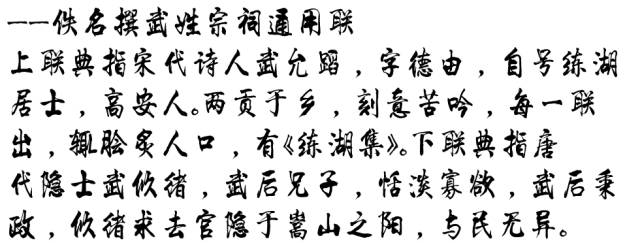 ——佚名撰武姓宗祠通用联
上联典指宋代诗人武允蹈，字德由，自号练湖
居士，高安人。两贡于乡，刻意苦吟，每一联
出，辄脍炙人口，有《练湖集》。下联典指唐
代隐士武攸绪，武后兄子，恬淡寡欲，武后秉
政，攸绪求去官隐于嵩山之阳，与民无异。